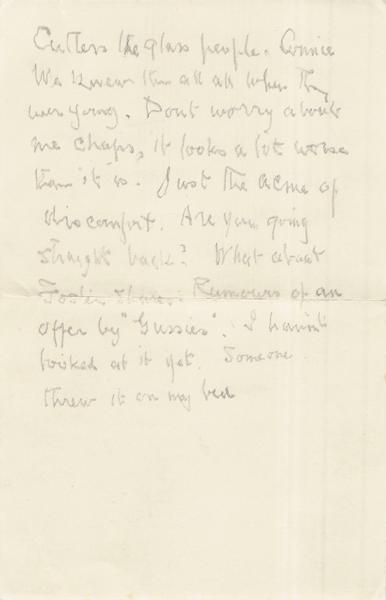 Cutlers the glass people. Connie
We knew them all all when they
were young. Dont worry about
me chaps, it looks a lot worse
than it is. Just the acme of
discomfort. Are you going
straight back? What about
shares: Rumours of an
offer by "Gussies". I havn't
looked at it yet. Someone
threw it on my bed